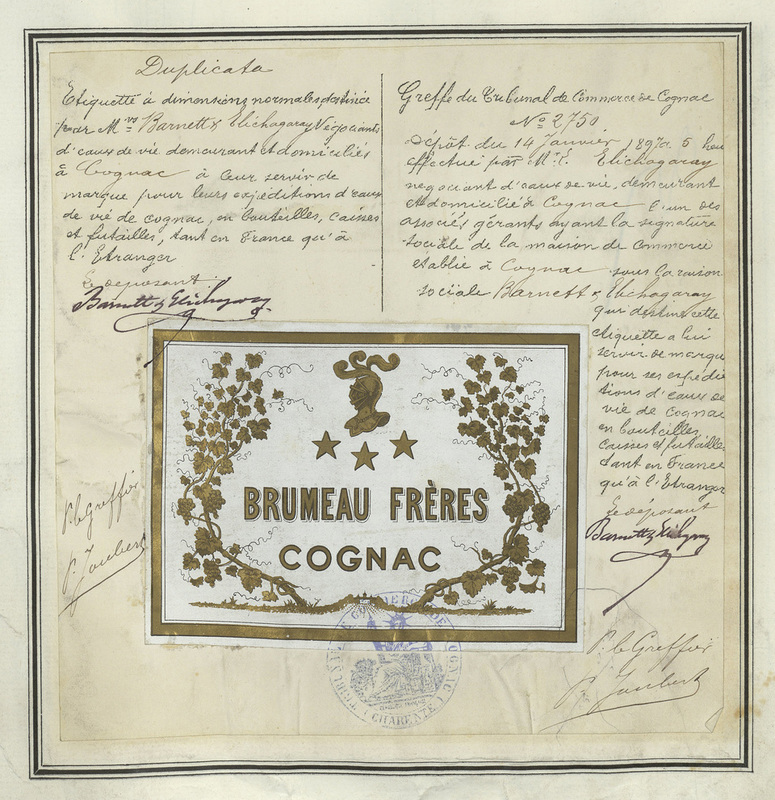 Duplicata
Etiquette à dimensions normales, destinée
par Mrs Barnett & Elichagaray Négociants
d'eaux de vie demeurant et domiciliés
à Cognac à leur servir de
marque pour leurs expéditions d'eaux
de vie de cognac, en bouteilles, caisses
et futailles, tant en France qu'à
l'Etranger
Le déposant :
Barnett & Elichagaray
Greffe du Tribunal de Commerce de Cognac
No 2750
Dépôt du 14 Janvier 1897 à 5 heu
effectué par Mr. Elichagaray
négociant d'eaux de vie, demeurant
et domicilié à Cognac l'un des
associés gérants ayant la signature
sociale de la maison de Commerce
établie à Cognac sous la raison
sociale Barnett & Elichagaray
qui destine cette
étiquette à lui
servir de marque
pour ses expédi
tions d'eaux de
vie de Cognac
en bouteilles
caisses et futailles
tant en France
qu'à l'Etranger
Le déposant
Barnett & Elichagaray
P. le Greffier
P. Joubert
BRUMEAU FRÈRES
COGNAC
P. le Greffier
P. Joubert
TRIBUNAL DE COMMERCE DE COGNAC
(CHARENTE)